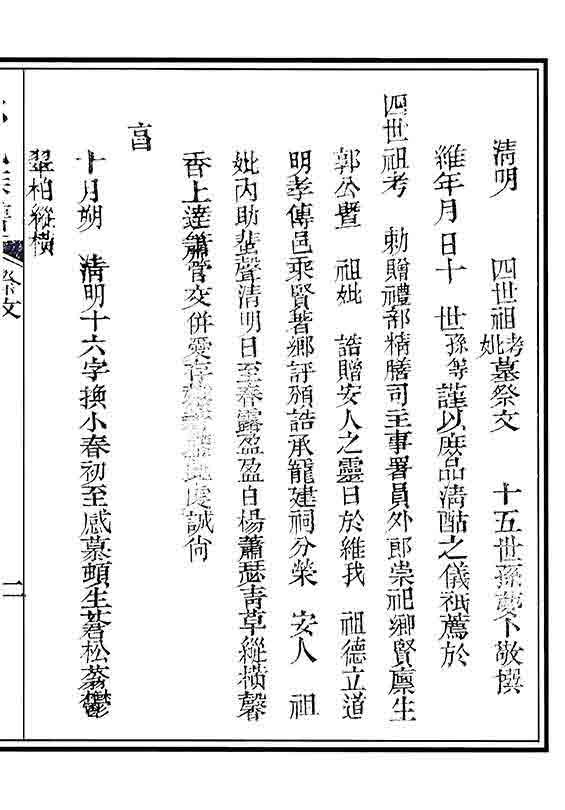 清明　四世祖考妣墓祭文　十五世孫　敬撰
維年月日十　世孫等謹以庶品清酤之儀祇薦於
四世祖考　勅贈禮部精膳司主事署員外郎崇祀鄉賢廩生
郭公暨　祖妣　誥贈安人之靈曰於維我　祖德立道
明孝傳邑乘賢著鄉評頒誥承寵建祠分榮　安人　祖
妣內助蜚聲清明日至春露盈盈白楊蕭瑟青草縱橫馨
香上達簫管交併愛存　此虔誠尚
亯
十月朔　清明十六字換小春初至感慕頓生蒼松蓊鬱
翠柏縱橫
祭文
二